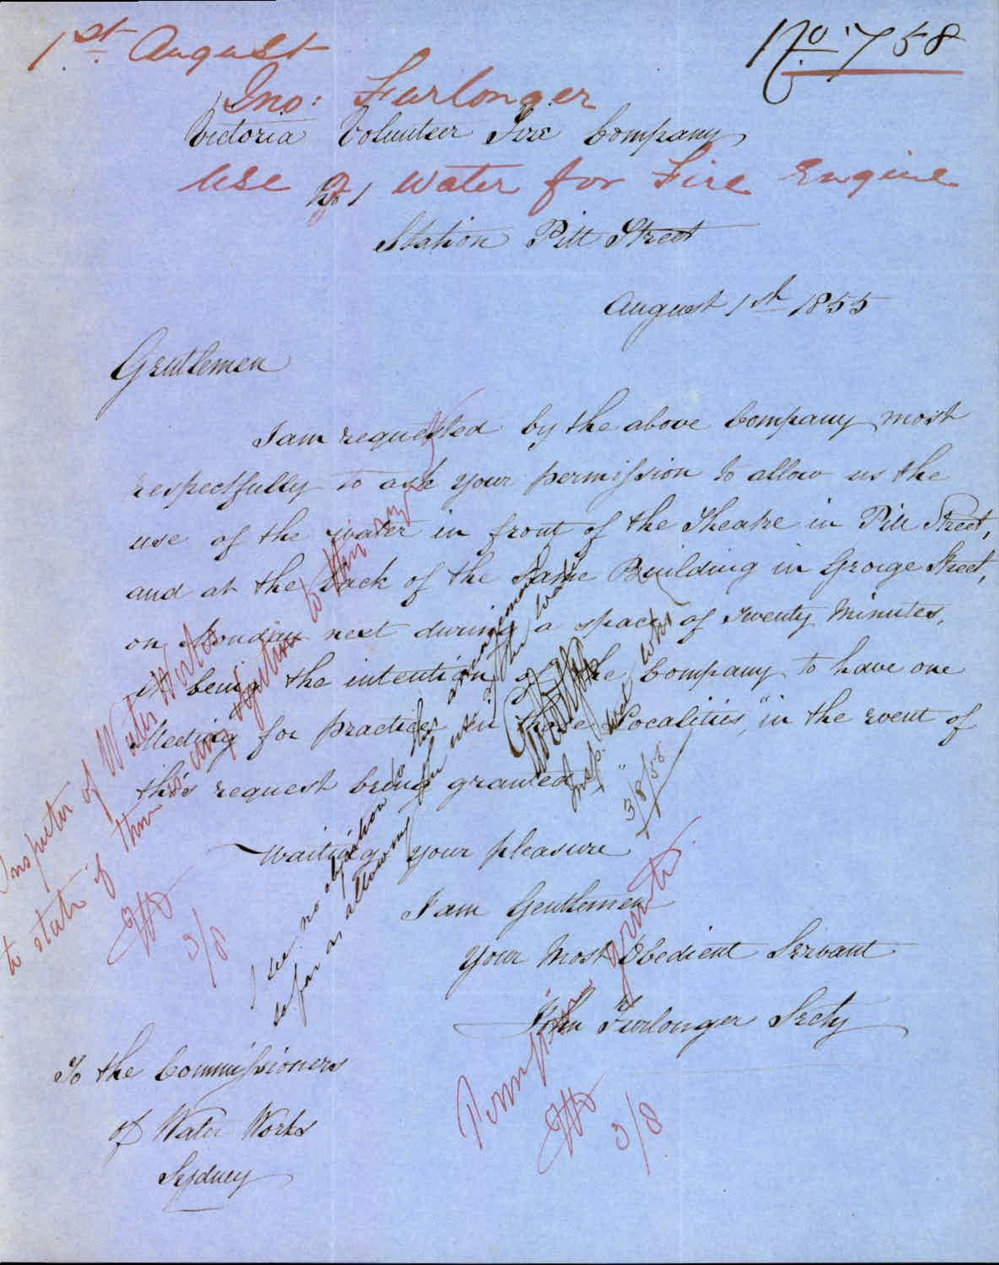 1st August
No. 758
Jno: Furlonger
Victoria Volunteer Fire Company
Use of Water for Fire Engine
No 1
Station Pitt Street
August 1st 1855
Gentlemen
I am requested by the above Company most
respectfully to ask your permission to allow us the
use of the water in front of the Theatre in Pitt Street,
and at the Back of the Same Building in George Street,
on Monday next during a space of Twenty Minutes,
it being the intention of the Company to have one
Meeting for Practice in those Localities, in the event of
this request being granted
Waiting your pleasure
I am Gentlemen
Your Most Obedient Servant
John Furlonger Secty
To the Commissioners
of Water Works
Sydney
Inspector of Water Works
to state if there is any objection to this
3/8
I see no objection to the arrangement
so far as allowing the use of the water
3/8/55
Permission granted
3/8